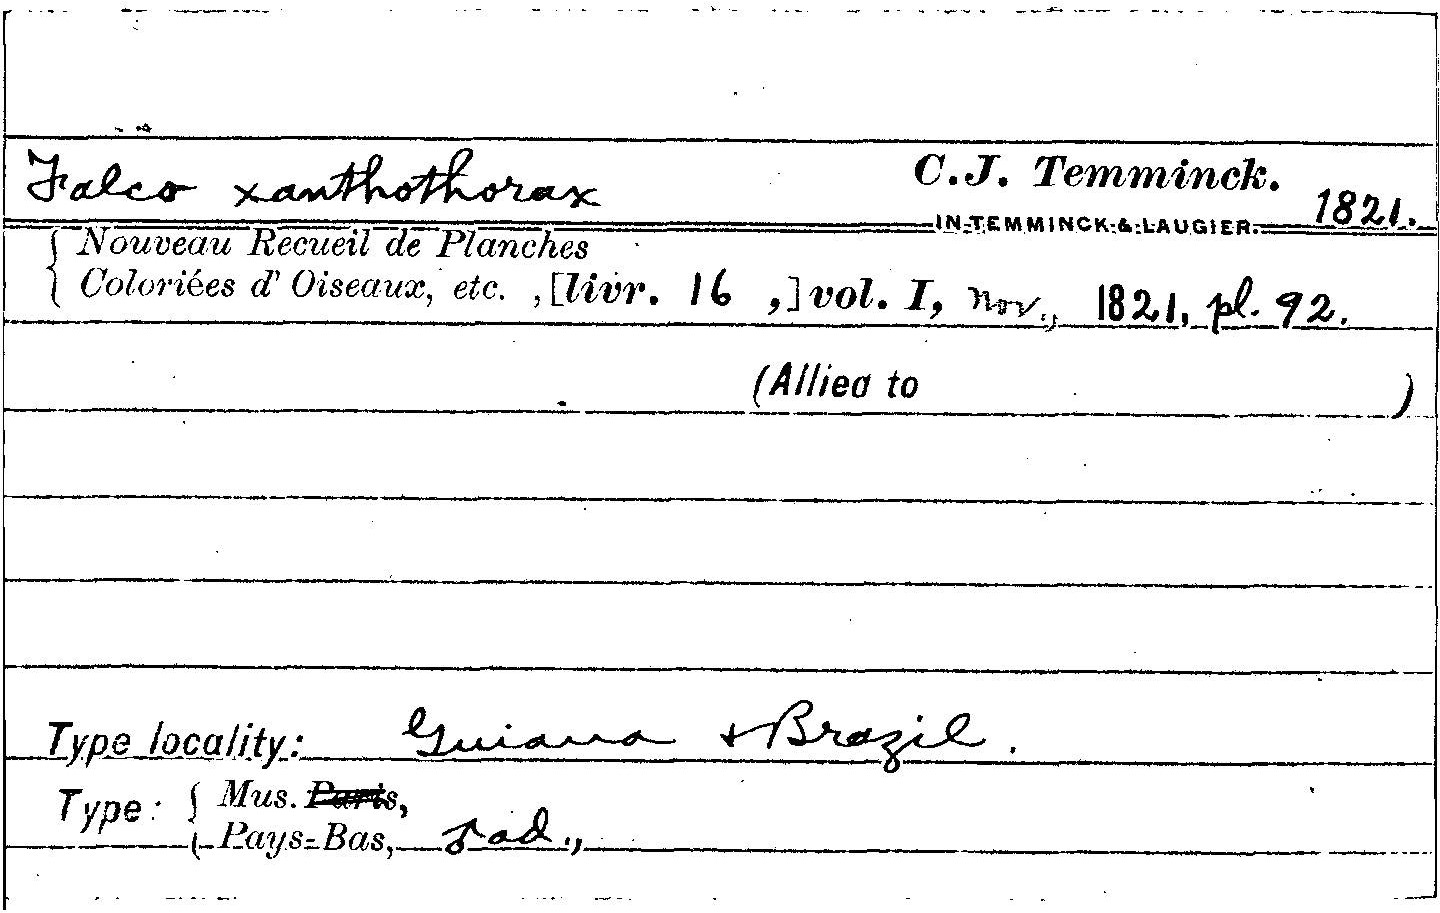 Falco xanthothorax C.J. Temminck. 1821.
IN TEMMINCK & LAUGIER.
Nouveau Recueil de Planches
Coloriées d' Oiseaux, etc. , [livr. 16 ,] vol. I, Nov., 1821, pl. 92.
(Allied to )
Type locality: Guiana & Brazil.
Type: Mus. Paris,
Pays-Bas, ad.,